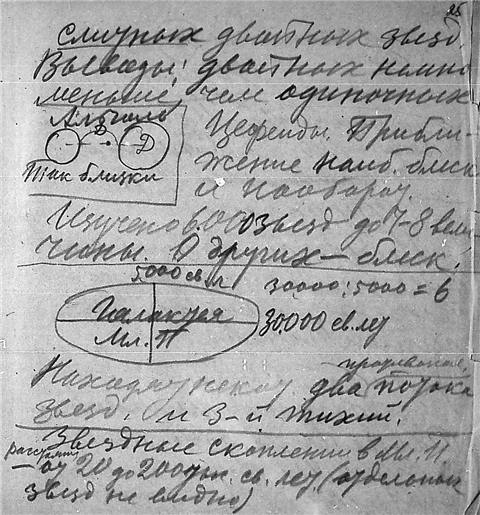 25
слитных двойных звезд
Выводы: двойных намно
меньше, чем одиночных
Алголь
Д
Д
Так близки
Цефеиды. Прибли-
жение наиб. блеск
и наоборот.
Изучено 6.000 звезд до 7-8 вели
чины. О других - блеск.
5000 св. л
30000:5000 = 6
Галактея
Мл. П
30.000 св. лет
два потока
звезд. и 3-й тихий.
Звездные скопления в Мл. П.
от 20 до 200 тыс. св. лет (отдельных
звезд не видно)